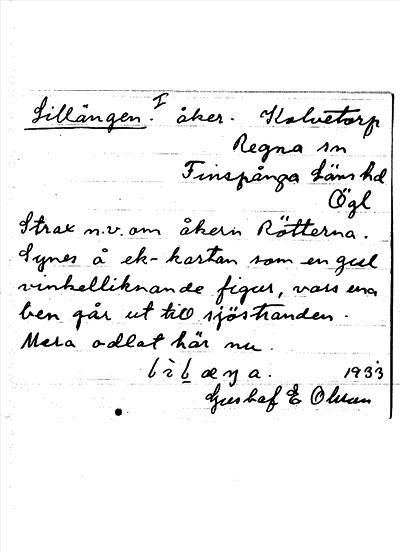 Lillängen. I åker. Kolvetorp
Regna sn
Finspånga läns hd
Ögl
Strax n.v. om åkern Rötterna.
Synes å ek-kartan som en gul
vinkelliknande figur, vars ena
ben går ut till sjöstranden.
Mera odlat här nu.
1933
Gustaf E Olsson